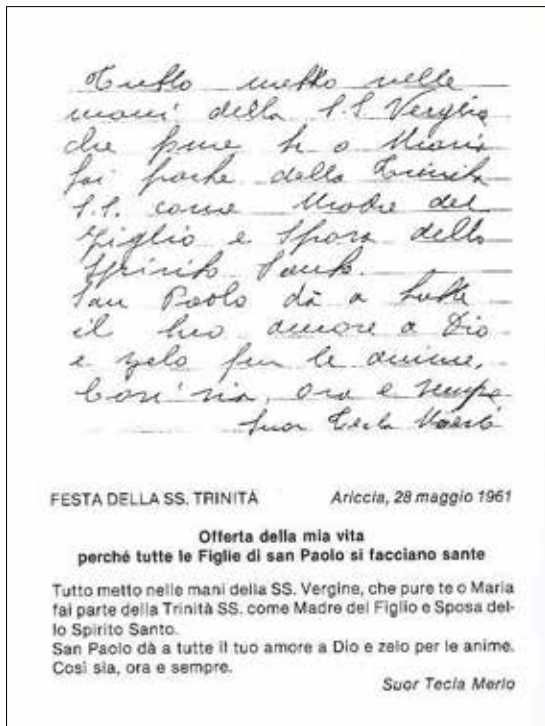 Tutto metto nelle
mani della S.S. Vergine
che pure te o Maria
fai parte della Trinità
S.S. come Madre del
Figlio e Sposa dello
Spirito Santo.
San Paolo dà a tutte
il tuo amore a Dio
e zelo per le anime,
Così sia, ora e sempre
Suor Tecla Merlo
FESTA DELLA SS. TRINITÀ Ariccia, 28 maggio 1961
Offerta della mia vita
perché tutte le Figlie di san Paolo si facciano sante
Tutto metto nelle mani della SS. Vergine, che pure te o Maria
fai parte della Trinità SS. come Madre del Figlio e Sposa del-
lo Spirito Santo.
San Paolo dà a tutte il tuo amore a Dio e zelo per le anime.
Così sia, ora e sempre.
Suor Tecla Merlo